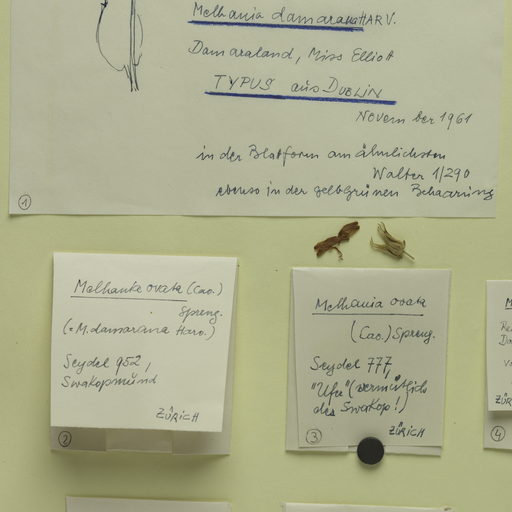 Melhania damarana HARV.
Damaraland, Miss Elliot
TYPUS aus DUBLIN
November 1961
in der Blattform am ähnlichsten
Walter 1/290
ebenso in der gelbgrünen Behaarung
1
Melhania ovata (Cav.)
Spreng.
(= M. damarana Harv.)
Seydel 952,
Swakopmund
ZÜRICH
2
Melhania ovata
(Cav.) Spreng.
Seydel 777,
"Ufer" (vermutlich
des Swakop!)
ZÜRICH
3
4